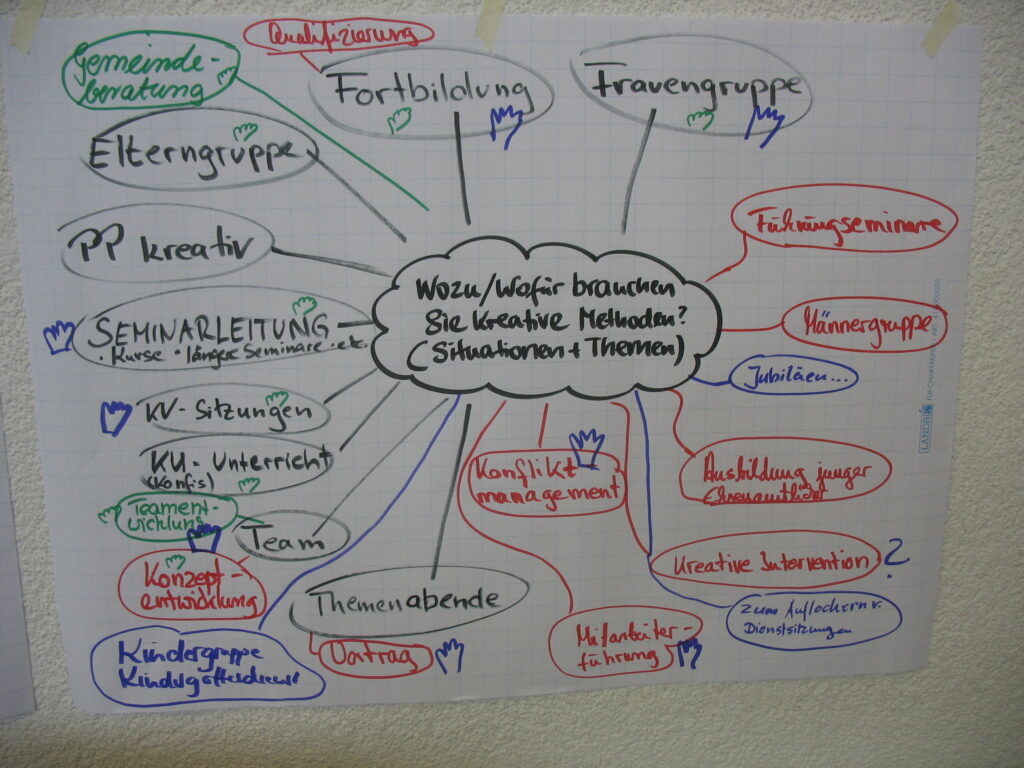 Qualifizierung
Gemeinde-
beratung
Fortbildung
Frauengruppe
Elterngruppe
PP kreativ
Führungseminare
Wozu/Wofür brauchen
Sie kreative Methoden?
(Situationen + Themen)
SEMINARLEITUNG
• Kurse • längere Seminare • etc.
Männergruppe
Jubiläen...
KV-Sitzungen
KU-Unterricht
(Konfis)
Konflikt
management
Ausbildung junger
Ehrenamtlicher
Teament-
wicklung
Team
Konzept-
entwicklung
Kreative Intervention ?
Themenabende
zum Auflockern v.
Dienstsitzungen
Mitarbeiter-
führung
Vortrag
Kindergruppe
Kindergottesdienst
LANDRÉ